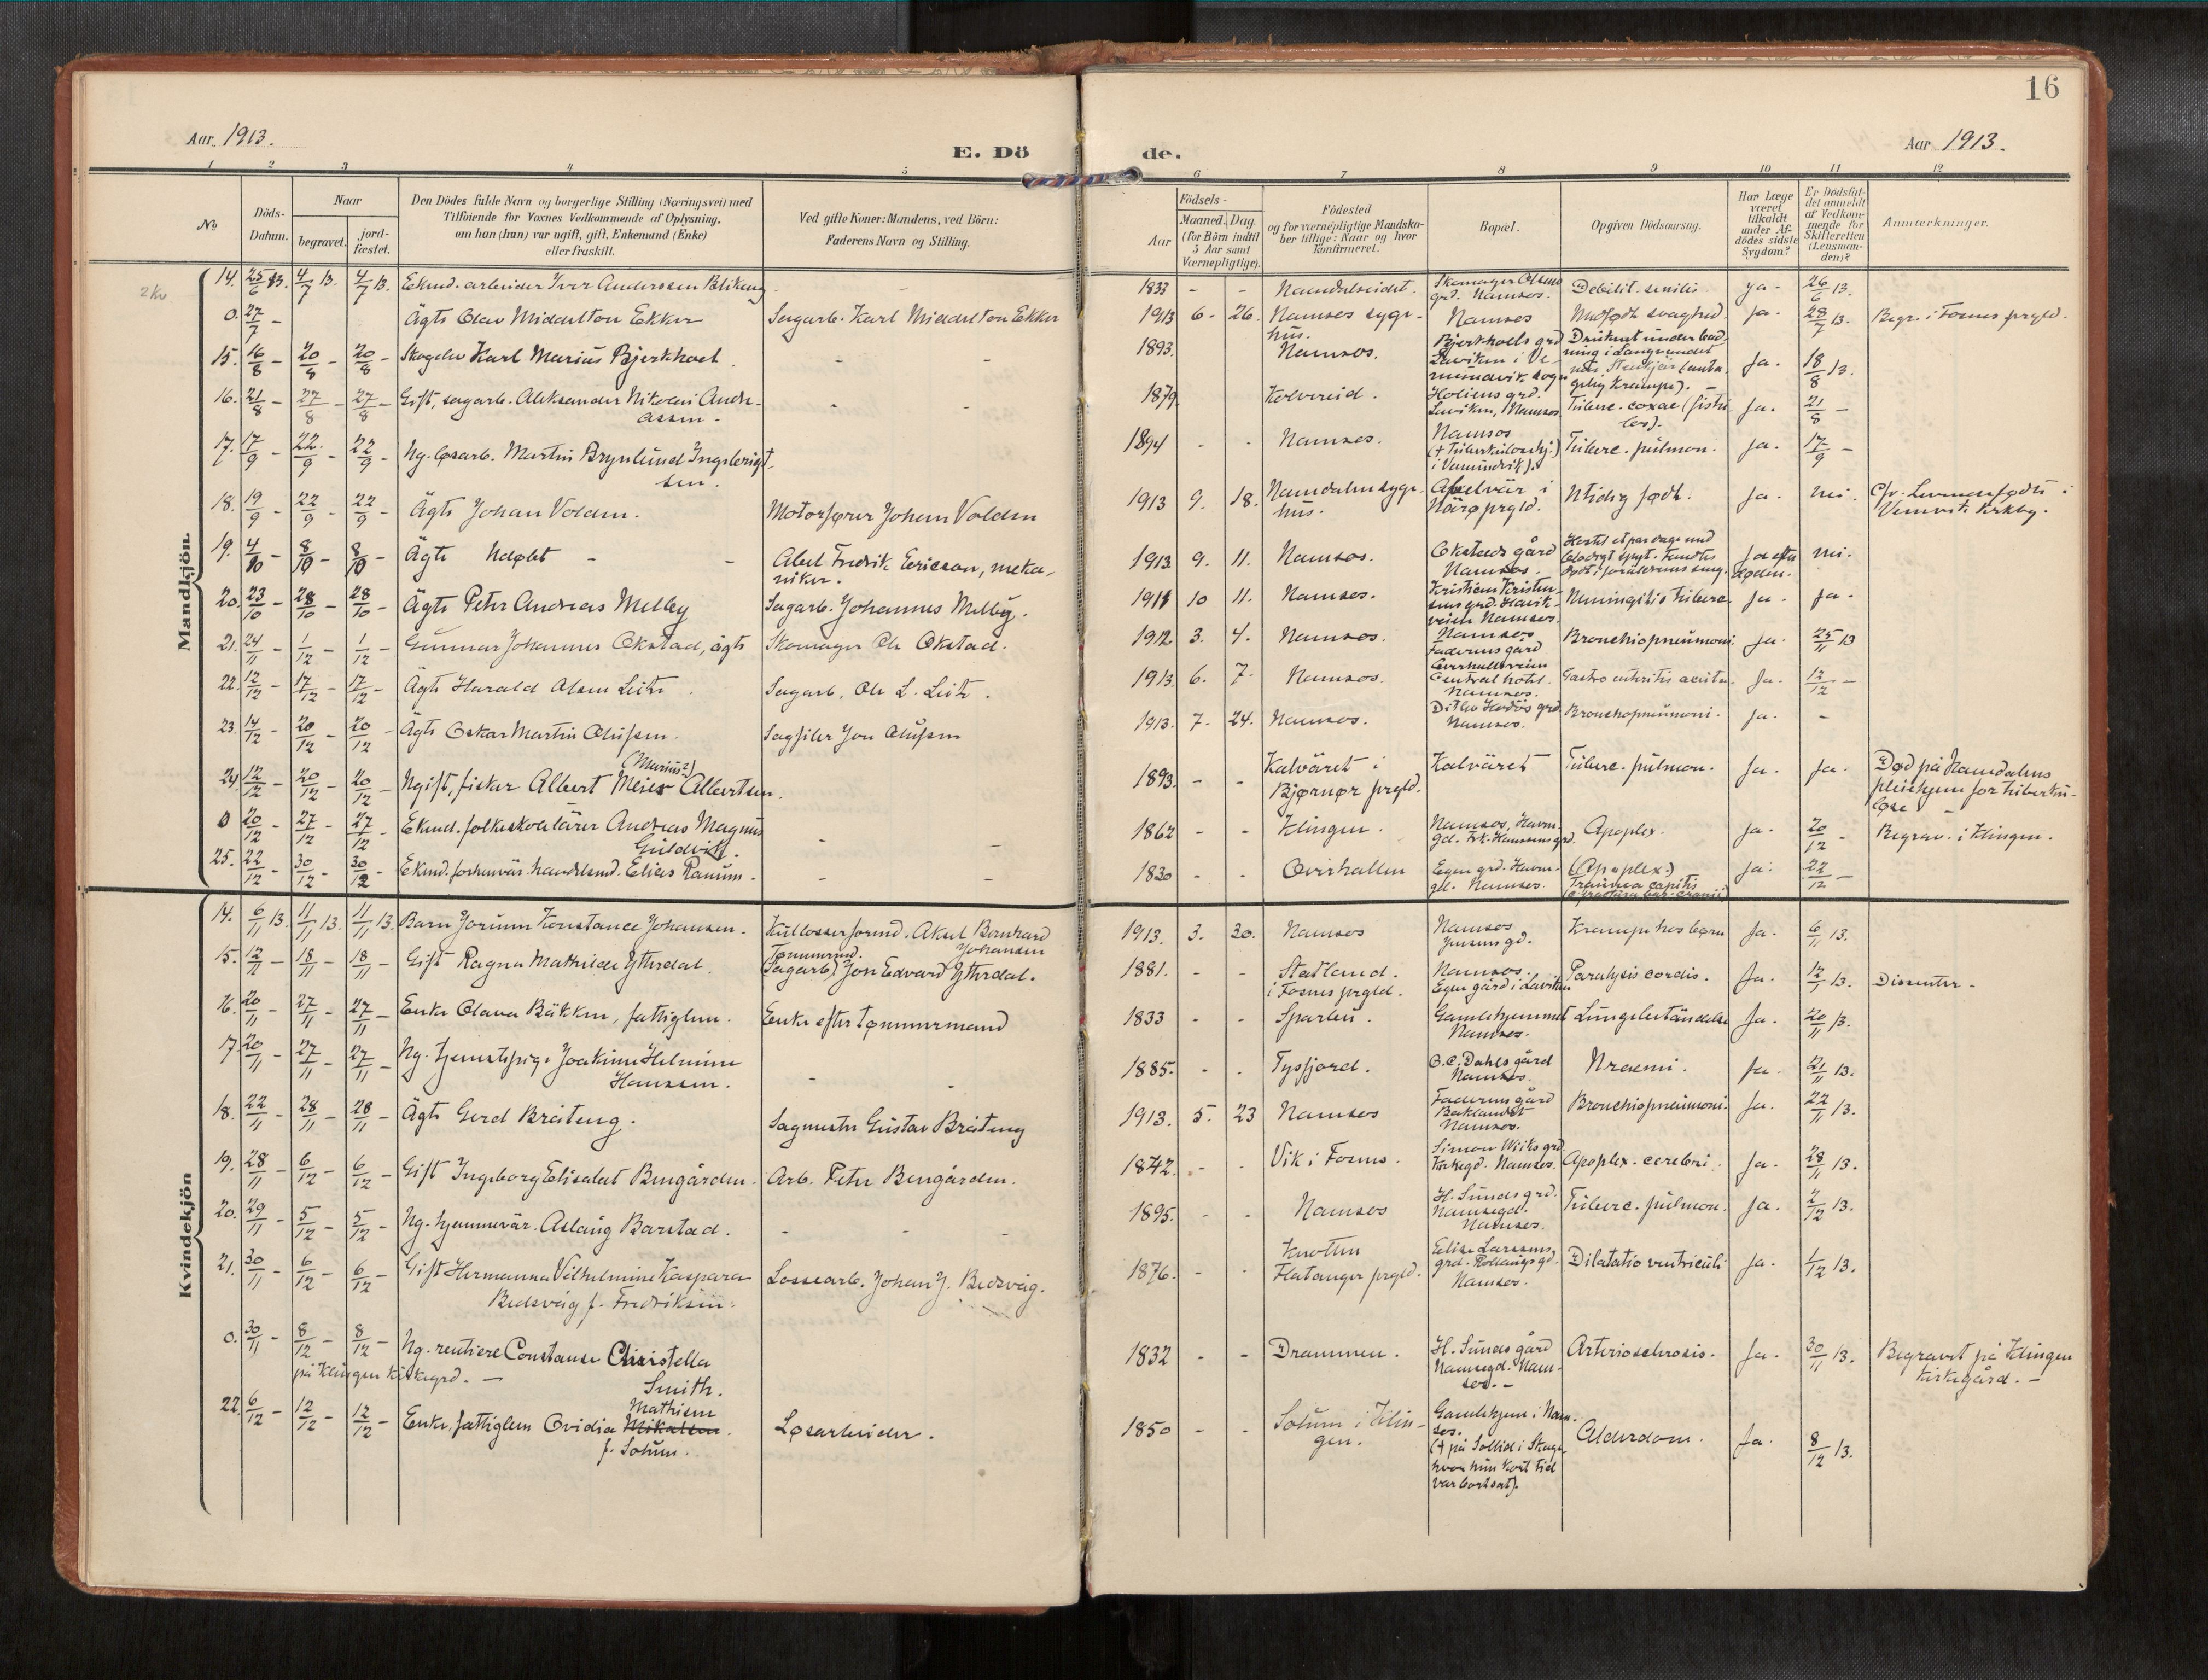 16
Aar 1913.
E. Dö
de.
Aar 1913.
1 2 3 4 5 6 7 8 9 10 11 12
No.
Döds-Datum.
Naar
begravet.
jord-fæstet.
Den Dödes fulde Navn og borgerlige Stilling (Næringsvei) med
Tilføiende for Voxnes Vedkommende af Oplysning,
om han (hun) var ugift, gift, Enkemand (Enke)
eller fraskilt.
Ved gifte Koner: Mandens, ved Börn:
Faderens Navn og Stilling.
Födsels-
Aar
Maaned. Dag.
(for Börn indtil
5 Aar samt
Værnepligtige).
Födested
og for værnepligtige Mandska-
ber tillige: Naar og hvor
konfirmeret.
Bopæl.
Opgiven Dödsaarsag.
Har Læge
været
tilkaldt
under Af-
dödes sidste
Sygdom?
Er Dödsfal-
det anmeldt
af Vedkom-
mende for
Skifteretten
(Lensman-
den)?
Anmerkninger.
2 Kv.
Mandkjön.
14. 25/6 13. 4/7 13. 4/7 13. Ekmd. arbeider Iver Anderssen Blikeng - - 1833 - - Namdalseidet. Skomager Olsens grd. Namsos. Debilit. senilis. ja - 26/6 13.
0. 27/7 - Ägte Olav Middelton Ekker Sagarb. Karl Middelton Ekker 1913 6. 26. Namsos syge-hus. Namsos Medfødt svaghed. Ja. 28/7 13. Begr. i Fosnes prgld.
15. 16/8 - 20/8 - 20/8 - Skogelev Karl Marius Bjerkhoel. - - 1893. Namsos. Bjerkhoels grd Laviken i Ve-mundvik sogn Druknet under bad-ning i Langvandet nær Stenkjær (anta-gelig Krampe). - Ja. 18/8 13.
16. 21/8 - 27/8 - 27/8 - Gift, sagarb. Aleksander Nikolai Andr-assen. - - 1879. Kolvereid. Holiens grd. Laviken, Namsos Tuberc. coxae (fistu-los). Ja. 21/8 -
17. 17/9 - 22/9 - 22/9 - Ug. løsarb. Martin Brynlund Ingebrigt-sen. 1894 - - Namsos. Namsos († Tuberkuloshj. i Vemundvik). Tuberc. pulmon. Ja. 17/9 -
18. 19/9 - 22/9 - 22/9 - Ägte Johan Volden. Motorfører Johan Volden 1913 9. 18. Namdalens syge-hus. Abelvär i Närø prgld. Utidig født. Ja. nei. Vemvik Kirkby.
19. 4/10 - 8/10 - 8/10 - Ägte Udøbt - - Abel Fredrik Ericson, meka-niker. 1913 9. 11. Namsos. Okstads gård Namsos. Ja efter døden. nei.
20. 23/10 - 28/10 - 28/10 - Ägte Peter Andreas Melby Sagarb. Johannes Melby. 1911 10 11. Namsos. Kristian Kristen-sens grd. Havik-veien Namsos. Meningitis tuberc. Ja. Ja.
21. 24/11 - 1/12 - 1/12 - Gunnar Johannes Okstad, ägte Skomager Ole Okstad. 1912 3. 4. Namsos. Namsos Faderens gård Bronchiopneumoni. Ja. 25/11 13
22. 12/12 - 17/12 - 17/12 - Ägte Harald Alsen Leite. Sagarb. Ole L. Leite. 1913. 6. 7. Namsos. Overhallsveien Central hotel. Namsos. Gastro enteritis acuta. Ja. 12/12 -
23. 14/12 - 20/12 - 20/12 - Ägte Oskar Martin Olufsen. Sagfiler Jon Olufsen 1913. 7. 24. Namsos. Ditlev Havdøs grd Namsos. Bronchopneumoni. Ja. -
24. 12/12 - 20/12 - 20/12 - Ugift, fisker Albert Meier (Marius?) Albertsen. - - 1893. - - Kalväret i Bjørnør prgld. Kalväret Tuberc. pulmon. Ja. Ja. Død på Namdalens pleiehjem for tuberku-løse -
0 20/12 - 27/12 - 27/12 - Ekmd. folkeskolelärer Andreas Magnus Guldvik. - - 1862 - - Klingen. Namsos, Havne-gd. Fr.k. Hanssens grd. Apoplex. Ja. 20/12 - Begrav. i Klingen.
25. 22/12 - 30/12 - 30/12 - Ekmd. forhenvär. handelsmd. Elias Ranum. - - 1830 - - Overhallen Egen grd. Havne-gd. Namsos. (Apoplex.) Trauma capitis (c. fractura bas. cranii) Ja. 22/12 -
Kvindekjön
14. 6/11 13. 11/11 13. 11/11 13. Barn Jorunn Konstance Johansen. Kullosserformd. Aksel Bernhard Johansen 1913. 3. 30. Namsos Namsos Jensens gd. Krampe hos børn Ja. 6/11 13.
15. 12/11 - 18/11 - 18/11 - Gift Ragna Mathilde Ytterdal. Tømmermd. (Sagarb.) Jon Edvard Ytterdal. 1881. - - Statland. i Fosnes prgld. Namsos. Egen gård i Laviken Paralysis cordis. Ja. 12/11 13. Dissenter -
16. 20/11 - 27/11 - 27/11 - Enke Olava Bäkken, fattiglem. Enke efter tømmermand 1833 - - Sparbu. Gamlehjemmet Namsos. Lungebetändelse Ja. 20/11 13.
17. 20/11 - 27/11 - 27/11 - Ug. tjenestpig. Joakime Helmine Hanssen. - - 1885. - - Tysfjord. O.C. Dahls gård Namsos. Uraemi. Ja. 21/11 13.
18. 22/11 - 28/11 - 28/11 - Ägte Gerd Breiteng. Sagmester Gustav Breiteng 1913. 5. 23 Namsos Faderens gård Baklandet Namsos. Bronchiopneumoni. Ja. 22/11 13.
19. 28/11 - 6/12 - 6/12 - Gift Ingeborg Elisabet Bengården. Arb. Peter Bengården. 1842. - - Vik i Fosnes. Simon Wiiks grd Kirkegd. Namsos. Apoplex. cerebri. Ja. 28/11 13.
20. 29/11 - 5/12 - 5/12 - Ug. hjemmevär. Aslaug Barstad. - - - 1895. - - Namsos H. Sunds grd. Namsegd. Namsos. Tuberc. pulmon. Ja. 2/12 13.
21. 30/11 - 6/12 - 6/12 - Gift Hermanna Vilhelmine Kaspara Bedsvåg f. Fredriksen. Lossearb. Johan J. Bedsvåg. 1876. - - Knotten Flatanger prgld. Eline Larssens grd. Namsos. Dilatatio ventriculi Ja. 1/12 13.
0. 30/11 - 8/12 - 8/12 - Ug. rentiere Constanse Christella Smith. på Klingen kirkegrd. - 1832 - - Drammen. H. Sunds gård Namsegd. Nam-sos. - Arteriosclerosis. Ja. 30/11 13. Begravet på Klingen kirkegård. -
22. 6/12 - 12/12 - 12/12 - Enke, fattiglem Ovidia Mikalsen. Mathisen f. Solum. Løsarbeider. 1850 - - Solum i Klin-gen. Gamlehjem i Nam-sos. († på Sollid i Skage hvor hun kort tid var bortsat). Alderdom. Ja. 8/12 13.